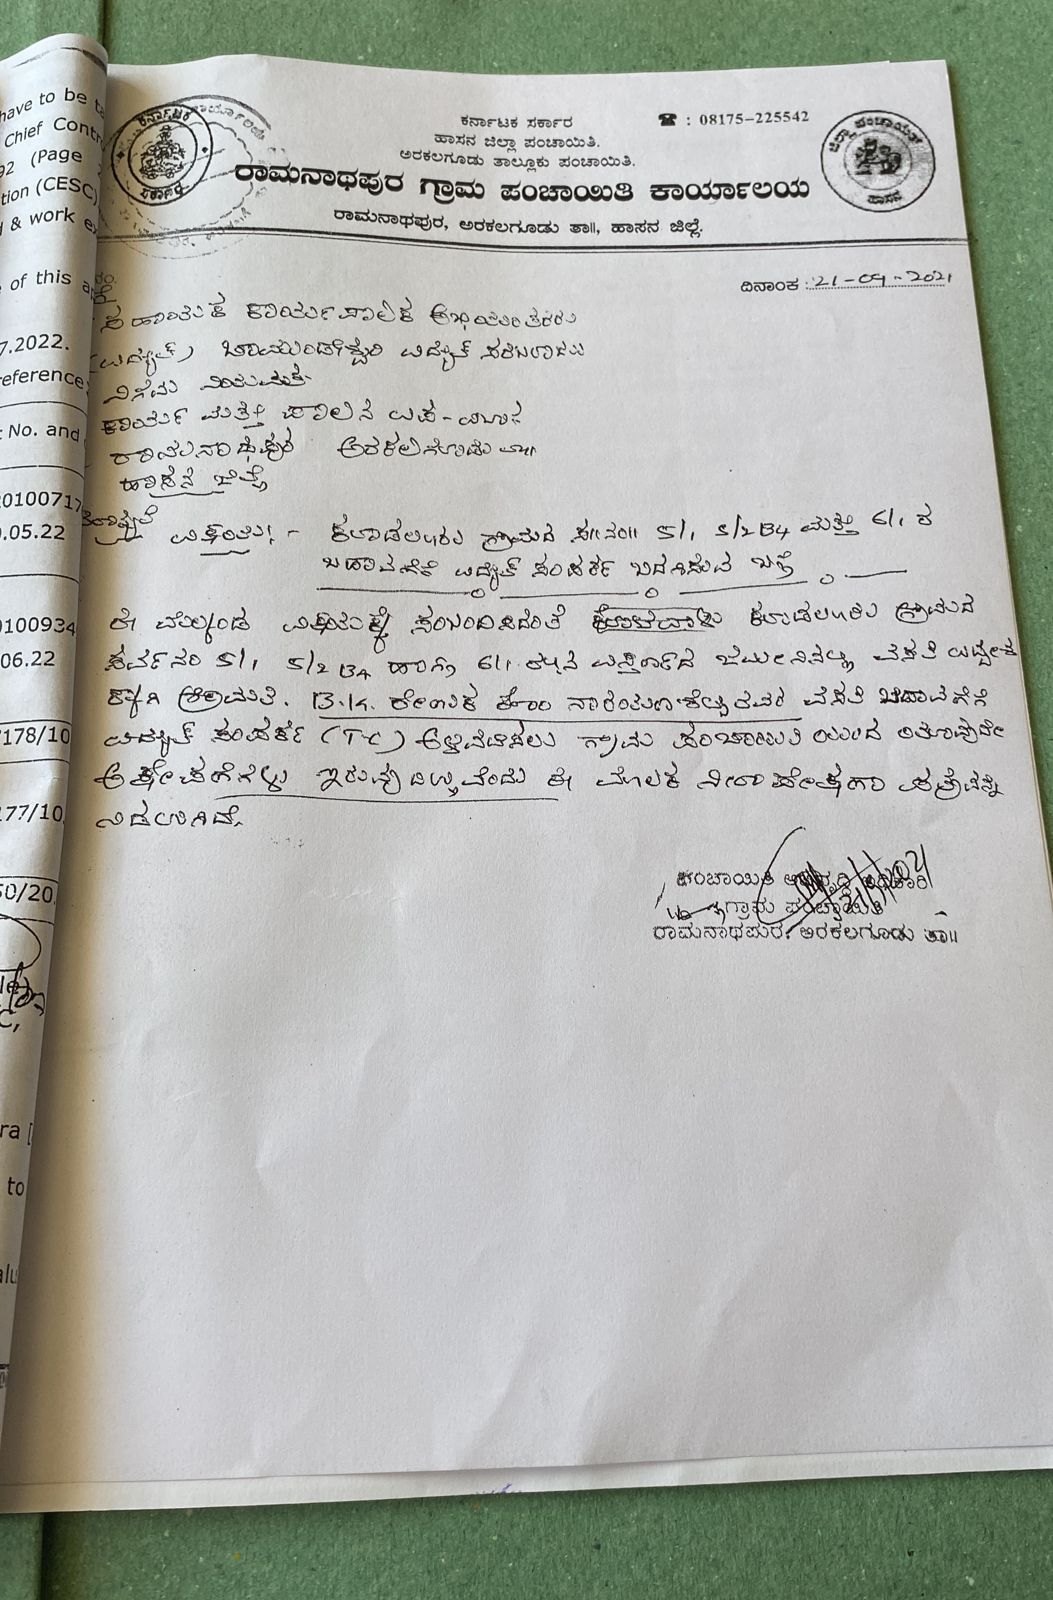 have to be
Chief Contr
92 (Page
tion (CESC)
& work
of this
7.2022.
reference
No. and
20100717
.05.22
0100934
06.22
178/10
177/10
50/20
C,
ra [
to
alu
ಕರ್ನಾಟಕ ಸರ್ಕಾರ
☎ : 08175-225542
ಹಾಸನ ಜಿಲ್ಲಾ ಪಂಚಾಯಿತಿ.
ಅರಕಲಗೂಡು ತಾಲ್ಲೂಕು ಪಂಚಾಯಿತಿ.
ರಾಮನಾಥಪುರ ಗ್ರಾಮ ಪಂಚಾಯಿತಿ ಕಾರ್ಯಾಲಯ
ರಾಮನಾಥಪುರ, ಅರಕಲಗೂಡು ತಾ॥, ಹಾಸನ ಜಿಲ್ಲೆ.
ಕರ್ನಾಟಕ
ಸರ್ಕಾರ
ಜಿಲ್ಲಾ ಪಂಚಾಯತ್
ಹಾಸನ
ದಿನಾಂಕ : 21-09-2021
ಸಹಾಯಕ ಕಾರ್ಯಪಾಲಕ ಅಭಿಯಂತರರು
(ವಿದ್ಯುತ್) ಚಾಮುಂಡೇಶ್ವರಿ ವಿದ್ಯುತ್ ಸರಬರಾಜು
ನಿಗಮ ನಿಯಮಿತ
ಕಾರ್ಯ ಮತ್ತು ಪಾಲನ ಉಪ-ವಿಭಾಗ
ರಾಮನಾಥಪುರ ಅರಕಲಗೂಡು ತಾ॥
ಹಾಸನ ಜಿಲ್ಲೆ
ವಿಷಯ:- ಗ್ರಾಮದ ಸ॥ನಂ॥ 5/1, 5/2B4 ಮತ್ತು 6/1 ರ
ಬಡಾವಣೆಗೆ ವಿದ್ಯುತ್ ಸಂಪರ್ಕ ಒದಗಿಸುವ ಬಗ್ಗೆ
ಈ ಮೇಲ್ಕಂಡ ವಿಷಯಕ್ಕೆ ಸಂಬಂಧಿಸಿದಂತೆ ಗ್ರಾಮದ
ಸರ್ವೆ ನಂ 5/1, 5/2B4 ಹಾಗೂ 6/1 ರ ಜಮೀನಿನಲ್ಲಿ ವಸತಿ ಉದ್ದೇಶ
ಕ್ಕಾಗಿ ಶ್ರೀಮತಿ. B.K. ಕೋಂ ವಸತಿ ಬಡಾವಣೆಗೆ
ವಿದ್ಯುತ್ ಸಂಪರ್ಕ (T-C) ಅಳವಡಿಸಲು ಗ್ರಾಮ ಪಂಚಾಯಿತಿ ಯಿಂದ ಯಾವುದೇ
ಆಕ್ಷೇಪಣೆಗಳು ಇರುವುದಿಲ್ಲವೆಂದು ಈ ಮೂಲಕ ನಿರಾಪೇಕ್ಷಣಾ ಪತ್ರವನ್ನು
ನೀಡಲಾಗಿದೆ.
ಪಂಚಾಯಿತಿ ಅಭಿವೃದ್ಧಿ ಅಧಿಕಾರಿ
ಗ್ರಾಮ ಪಂಚಾಯಿತಿ
ರಾಮನಾಥಪುರ, ಅರಕಲಗೂಡು ತಾ॥